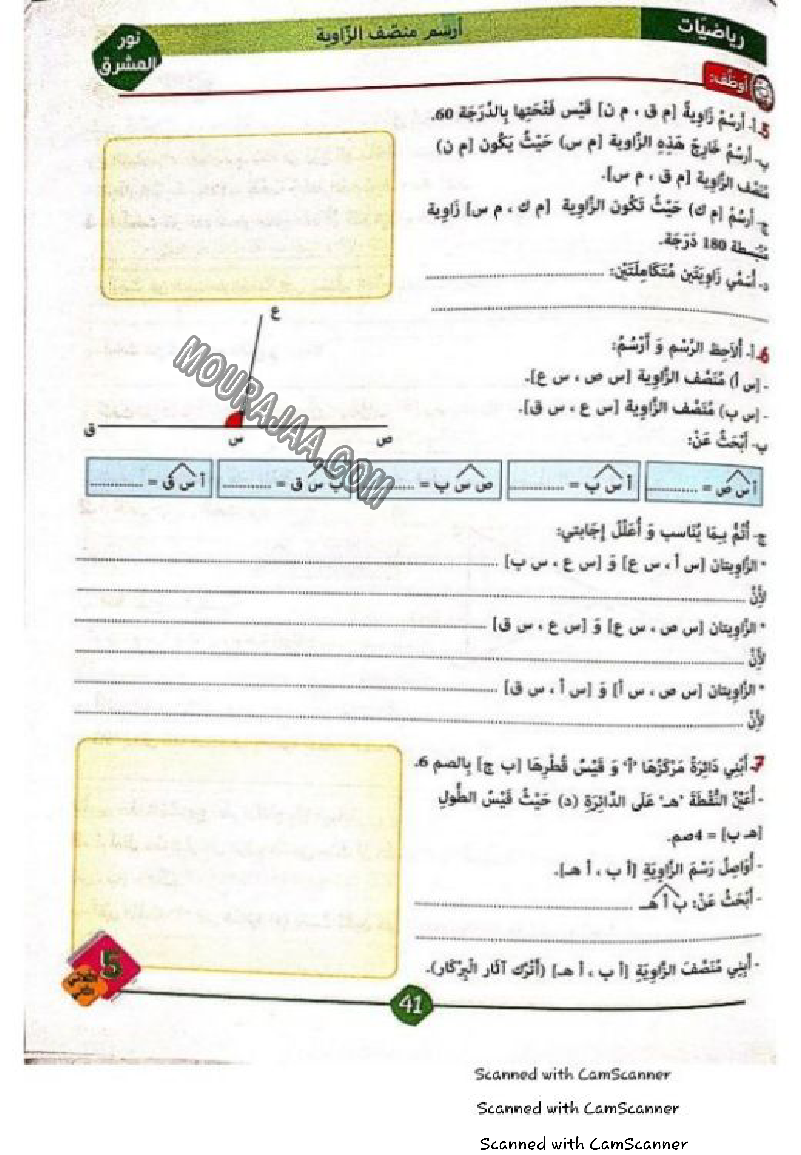 رياضيّات
أرسم منصّف الزّاوية
نور
المشرق
أوظّف:
5. أ- أرسُمُ زَاوِيةً [م ق ، م ن] قَيْس فَتْحَتِها بِالدَّرَجَة 60.
ب- أرسُمُ خَارِجَ هَذِهِ الزَّاوية [م س) حَيْثُ يَكُون [م ن)
مُنَصِّف الزَّاوِية [م ق ، م س].
ج- أرسُمُ [م ك) حَيْثُ تَكُون الزَّاوِية [م ك ، م س] زَاوِية
مُنْبَسِطة 180 دَرَجَة.
د- أُسَمِّي زَاوِيَتَين مُتَكَامِلَتَيْن:
6. أ- أُلَاحِظ الرَّسْم وَ أَرْسُمُ:
- [س أ) مُنَصِّف الزَّاوِية [س ص ، س ع].
- [س ب) مُنَصِّف الزَّاوِية [س ع ، س ق].
ب- أَبْحَثُ عَنْ:
ع
ق س ص
أ س ص = ............
أ س ب = ............
ص س ب = ............
ب س ق = ............
أ س ق = ............
ج- أُتَمِّمُ بِمَا يُنَاسب وَ أُعَلِّلُ إِجَابَتي:
* الزَّاوِيتان [س أ ، س ع] وَ [س ع ، س ب]
لِأَنَّ
* الزَّاوِيتان [س ص ، س ع] وَ [س ع ، س ق]
لِأَنَّ
* الزَّاوِيتان [س ص ، س أ] وَ [س أ ، س ق]
لِأَنَّ
7- أَبْنِي دَائِرَةً مَرْكَزُهَا "أ" وَ قَيْسُ قُطْرِهَا [ب ج] بِالصم 6.
- أُعَيِّنُ النُّقْطَةَ "هـ" عَلَى الدَّائِرَةِ (د) حَيْثُ قَيْسُ الطُّولِ
[هـ ب] = 4صم.
- أُوَاصِلُ رَسْمَ الزَّاوِيَةِ [أ ب ، أ هـ].
- أَبْحَثُ عَنْ: ب أ هـ
- أَبْنِي مُنَصِّفَ الزَّاوِيَةِ [أ ب ، أ هـ] (أَتْرُك آثَار الْبِرْكَار).
5
41
MOURAJAA.COM
Scanned with CamScanner
Scanned with CamScanner
Scanned with CamScanner